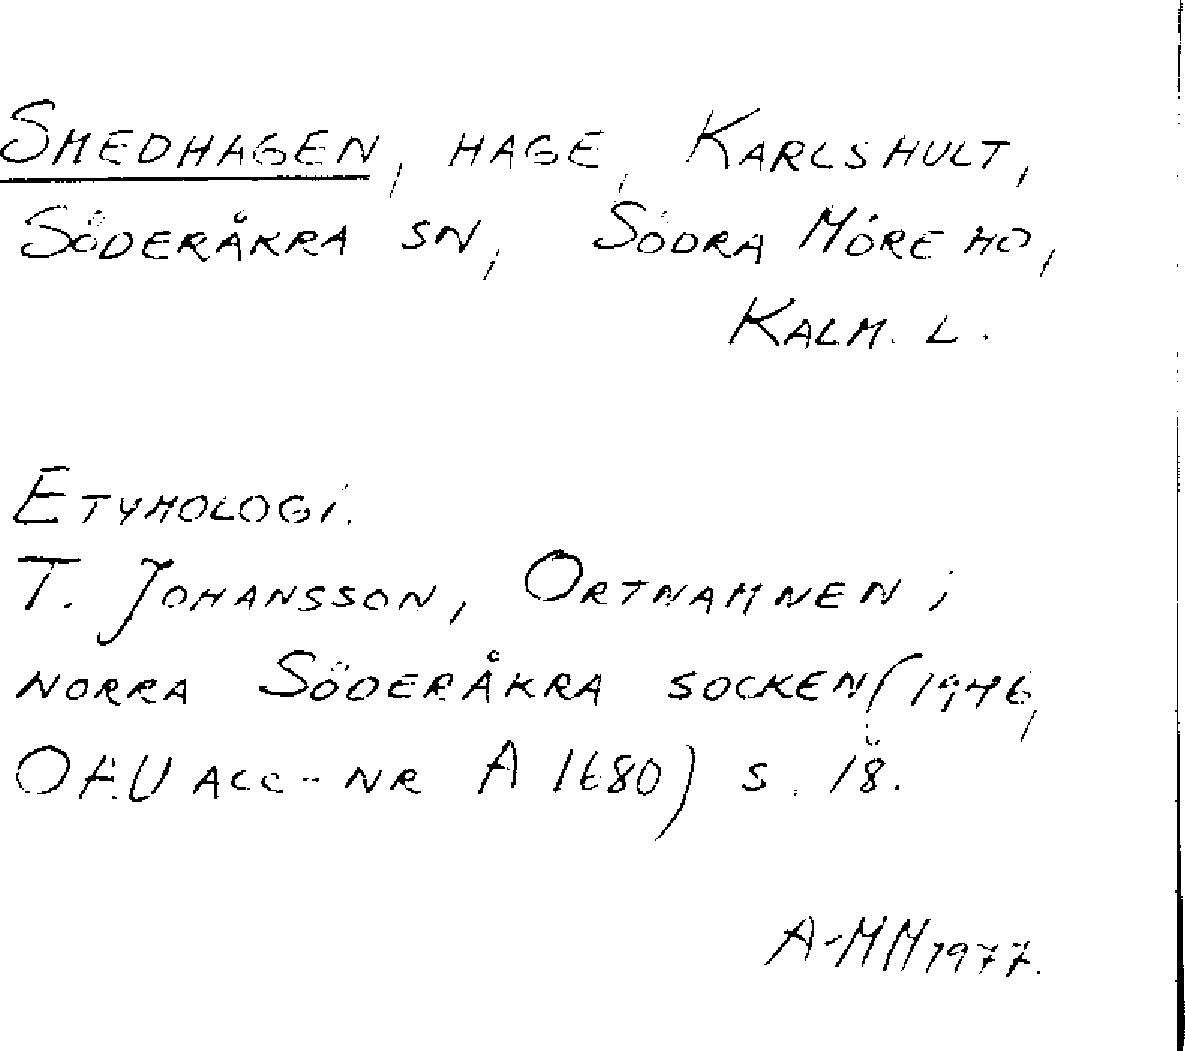 SMEDHAGEN, HAGE, KARLSHULT,
SÖDERÅKRA SN, SÖDRA MÖRE HD,
KALM. L.
ETYMOLOGI.
T. JOHANSSON, ORTNAMNEN i
NORRA SÖDERÅKRA SOCKEN (1946,
OAU ACC-NR A 1680) S. 18.
A-MM 1977.